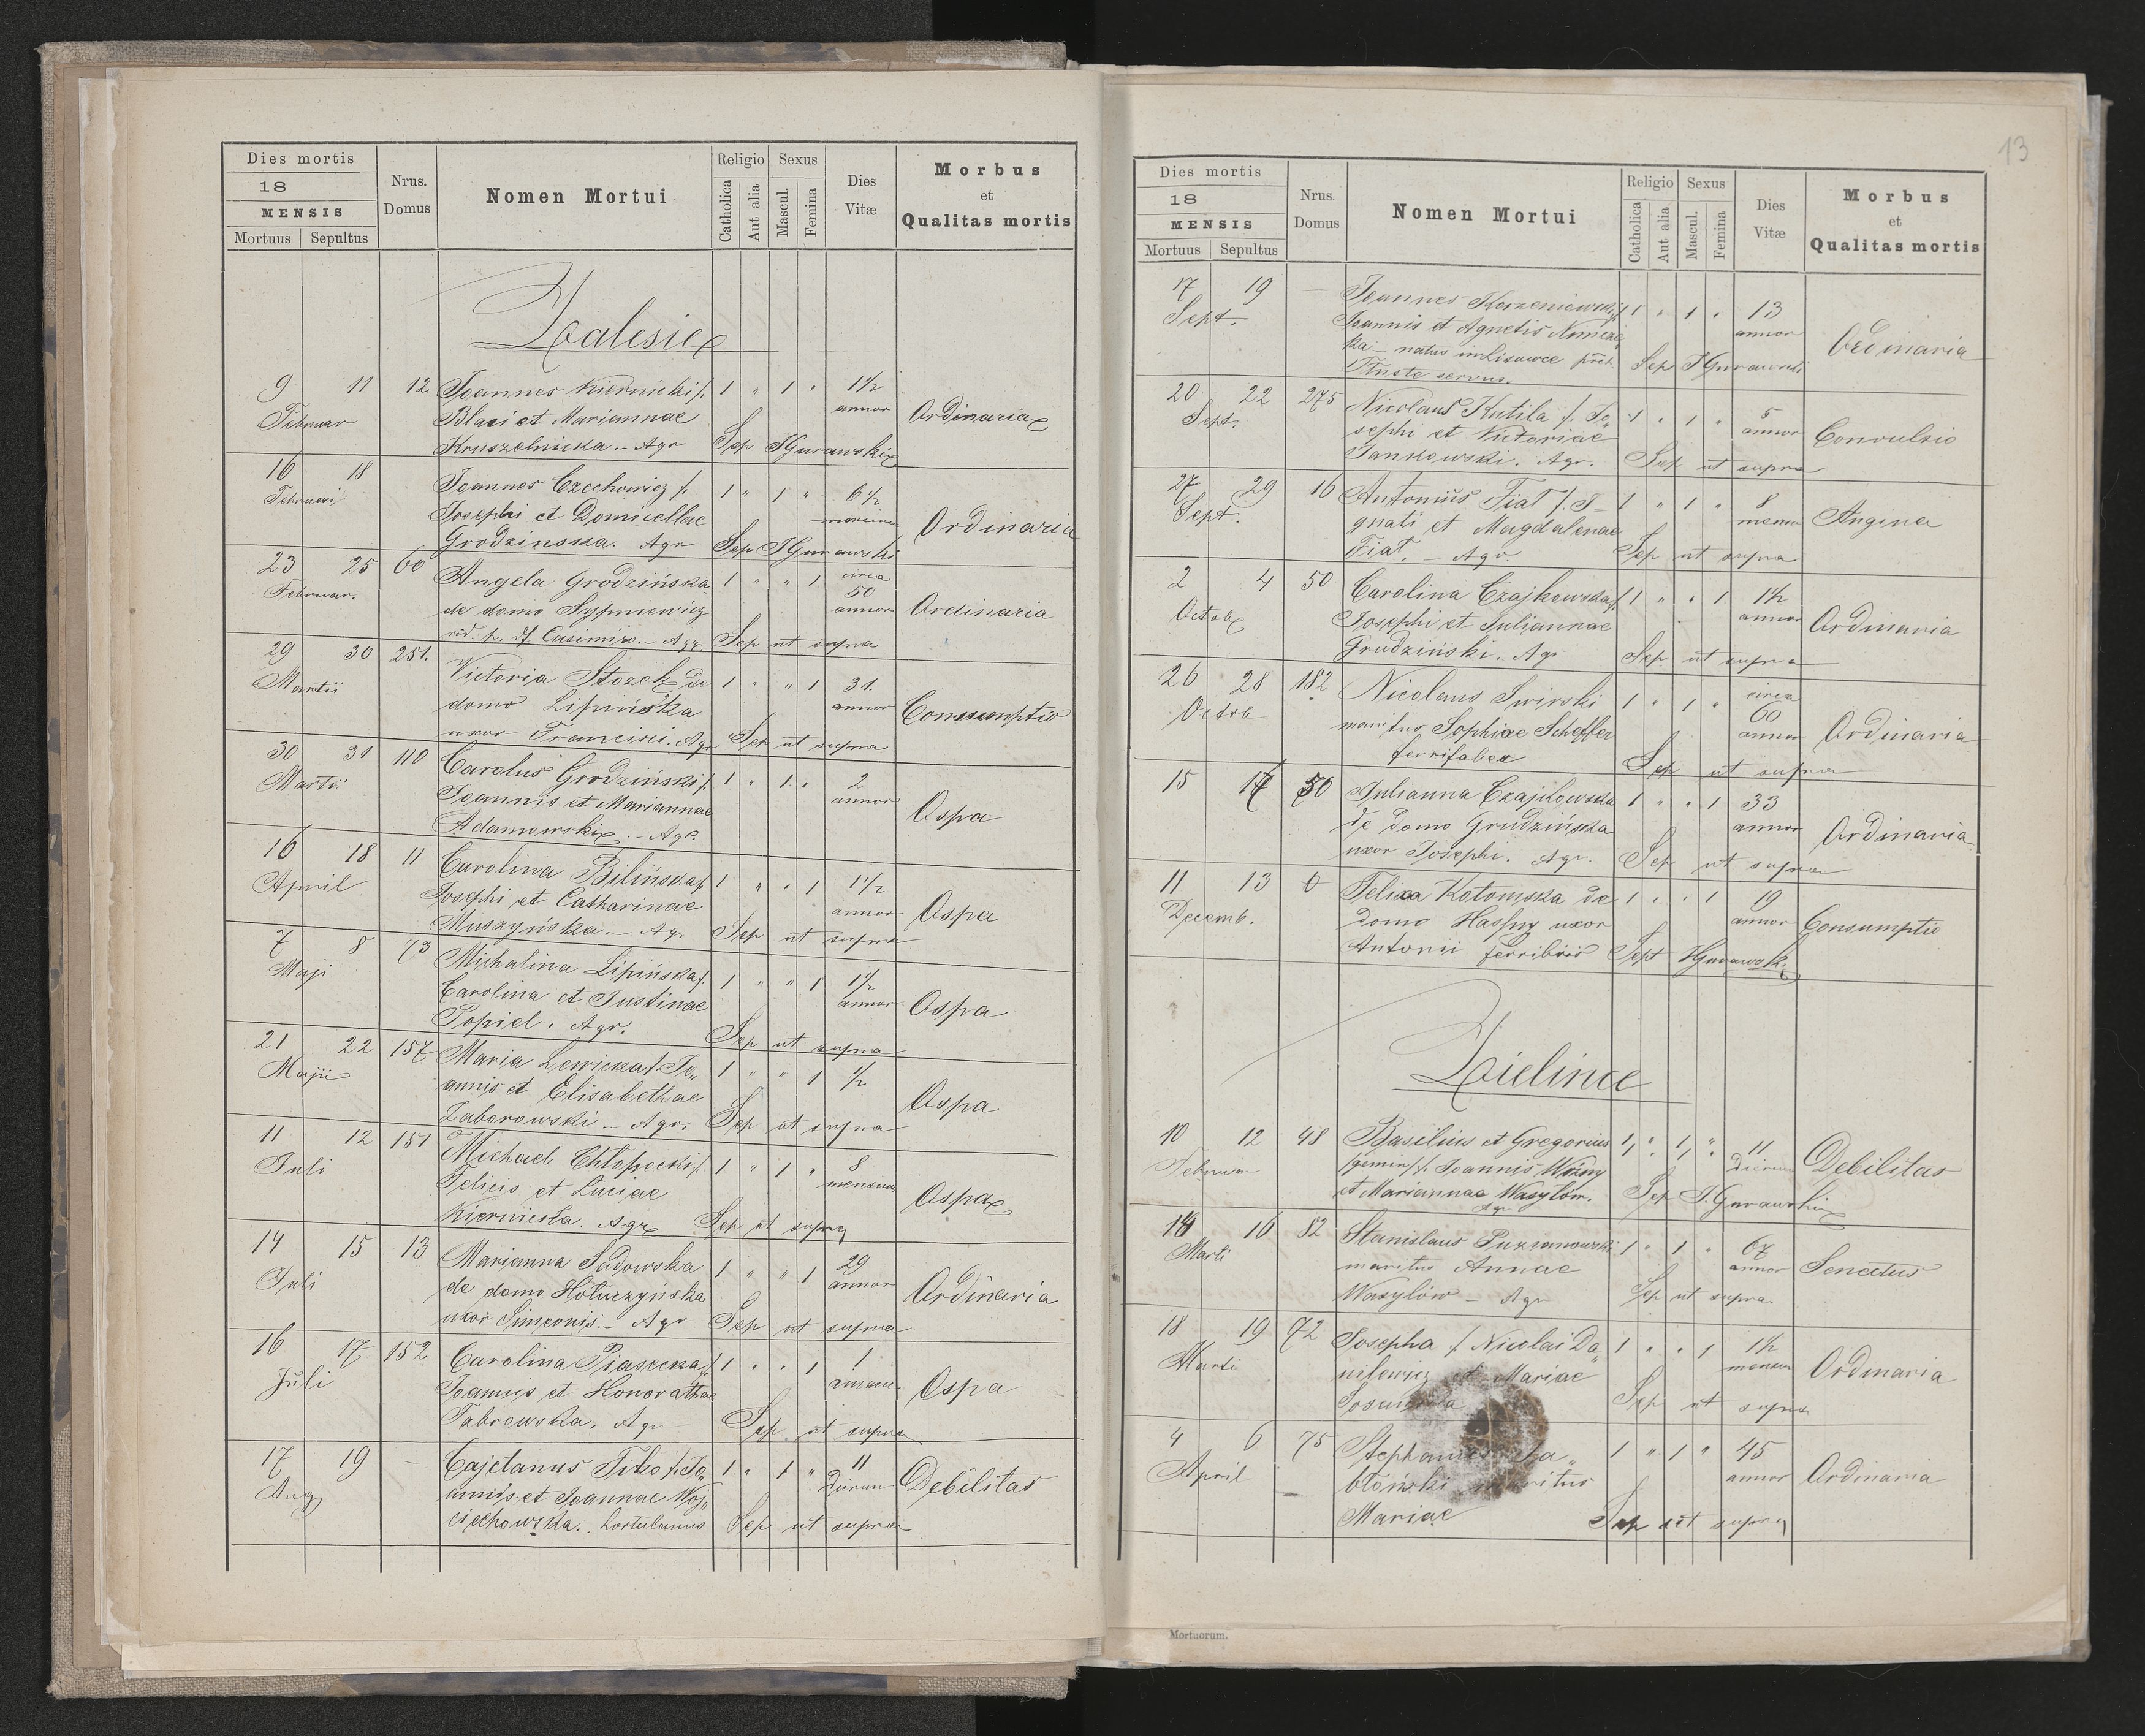 Dies mortis
18
MENSIS
Mortuus Sepultus
Nrus. Domus
Nomen Mortui
Religio
Catholica
Aut alia
Sexus
Mascul.
Femina
Dies Vitæ
Morbus
et
Qualitas mortis
Zalesie
9 11 12 Joannes Kiernicki f. 1 " 1 " 1 1/2
Februar Blasi et Mariannae annor Ordinaria
Kruszelnicka. - Agr Sep JGurawski
16 18 Joannes Czechowicz f. 1 " 1 " 6 1/2
Februari Josephi et Domicellae Ordinaria
Grodzinska. Agr Sep JGurawski
23 25 60 Angela Grodzińska 1 " " 1 circa
Februar. de domo Sypniewicz 50 annor Ordinaria
Casimiro. - Agr Sep ut supra
29 30 251. Victoria Stozek de 1 " " 1 31.
Martii domo Lipińska annor Consumptio
uxor Francisci. Agr Sep ut supra
30 31 110 Carolus Grodziński f. 1 " 1 " 2
Martii Joannis et Mariannae annor Ospa
Adamowski. - Agr.
16 18 11 Carolina Bilińska f. 1 " " 1 1 1/2
April Josephi et Catharinae annor Ospa
Muszyńska. - Agr Sep ut supra
7 8 73 Michalina Lipińska f. 1 " " 1 1 1/2
Maji Carolina et Justinae annor Ospa
Popiel. Agr. Sep ut supra
21 22 157 Maria Lewicka f. Jo" 1 " " 1 1/2
Maji annis et Elisabethae Ospa
Zaborowski. - Agr. Sep ut supra
11 12 151 Michael Chłopecki f. 1 " 1 " 8
Juli Felicis et Luciae mensium Ospa
Kiernicka. Agr Sep ut supra
14 15 13 Marianna Sadowska 1 " " 1 29
Juli de domo Hołuczyńska annor Ordinaria
uxor Simeonis. - Agr Sep ut supra
16 17 152 Carolina Piasecka f. 1 " " 1 1
Juli Joannis et Honorathae Ospa
Agr Sep ut supra
17 19 - Cajetanus f. Jo" 1 " 1 " 11
Aug annis et Joannae Woj" Dierum Debilitas
ciechowska. hortulanus Sep ut supra
13
Dies mortis
18
MENSIS
Mortuus Sepultus
Nrus. Domus
Nomen Mortui
Religio
Catholica
Aut alia
Sexus
Mascul.
Femina
Dies Vitæ
Morbus
et
Qualitas mortis
17 19 - Joannes Korzeniewski f. 1 " 1 " 13
Sept. Joannis et Agnetis annor Ordinaria
ka - natus in Lisowce Sep JGurawski
Tłuste servus.
20 22 275 Nicolaus Kutila f. Jo" 1 " 1 " 5
Sept. sephi et Victoriae annor Convulsio
Jankowski. Agr. Sep ut supra
27 29 16 Antonius Fiat f. I- 1 " 1 " 8
Sept. gnati et Magdalenae Angina
Fiat. - Agr. Sep ut supra
2 4 50 Carolina Czajkowska f. 1 " " 1 1 1/2
Octob Josephi et Juliannae annor Ordinaria
Grudziński. Agr Sep ut supra
26 28 182 Nicolaus Swirski 1 " 1 " circa
Octob maritus Sophiae Scheffer 60 annor Ordinaria
ferrifaber Sep ut supra
15 17 50 Julianna Czajkowska 1 " " 1 33
de Domo Grudzińska annor Ordinaria
uxor Josephi. Agr. Sep ut supra
11 13 6 Felixa Kotomska de 1 " " 1 19
Decemb. Domo uxor annor Consumptio
Antonii Sept JGurawski
Zielince
10 12 48 Basilius et Gregorius 1, " 1, " 11
Februar /gemin/ f. Joannis Woźny Dierum Debilitas
et Mariannae Wasylów. Agr Sep J. Gurawski
16 82 Stanislaus 1 " 1 " 67
Marti maritus Annae annor Senectus
Wasylów - Agr Sep ut supra
18 19 72 Josepha f Nicolai Da" 1 " " 1 1 1/2
Marti nilewicz et Mariae mensium Ordinaria
Sep ut supra
4 6 75 1 " 1 " 45
April błoński maritus annor Ordinaria
Mariae Sep ut supra
Mortuorum.